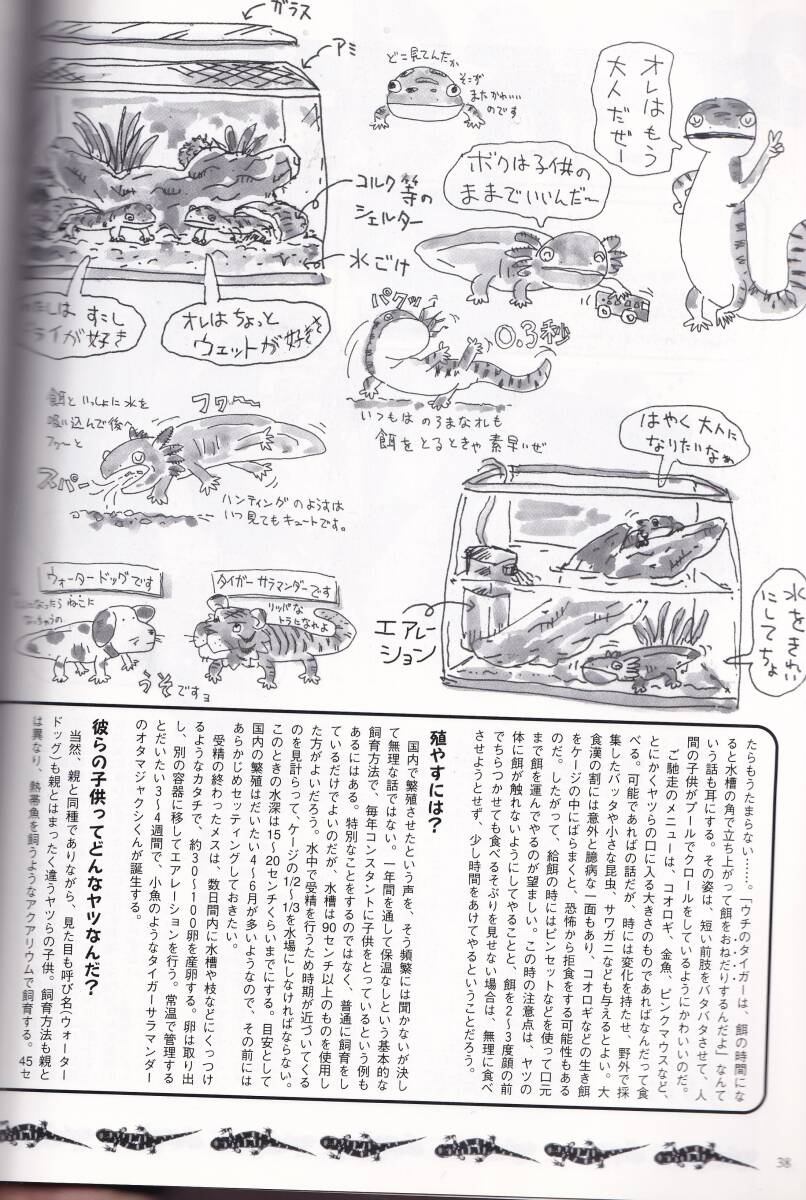 ガラス
アミ
どこ見てんだか
そこが
またかわいい
のです
オレはもう
大人だぜー
ボクは子供の
ままでいいんだ〜
コルク等の
シェルター
水ごけ
すこし
ドライが好き
オレはちょっと
ウェットが好き
パクッ
0.3秒
いつもはのろまなオレも
餌をとるときゃ素早いぜ
餌といっしょに水を
吸い込んで後へ
フワーと
フワ〜
スパー
ハンティングのようすは
いつ見てもキュートです。
はやく大人に
なりたいなぁ
エアレー
ション
水をきれい
にしてちょ
ウォータードッグです
になったらねこに
なっちゃうの
タイガーサラマンダーです
リッパな
トラになれよ
うそですョ
たらもうたまらない……。「ウチのタイガーは、餌の時間にな
ると水槽の角で立ち上がって餌をおねだりするんだよ」なんて
いう話も耳にする。その姿は、短い前肢をバタバタさせて、人
間の子供がプールでクロールをしているようにかわいいのだ。
ご馳走のメニューは、コオロギ、金魚、ピンクマウスなど、
とにかくヤツらの口に入る大きさのものであればなんだって食
べる。可能であればの話だが、時には変化を持たせ、野外で採
集したバッタや小さな昆虫、サワガニなども与えるとよい。大
食漢の割には意外と臆病な一面もあり、コオロギなどの生き餌
をケージの中にばらまくと、恐怖から拒食をする可能性もある
のだ。したがって、給餌の時にはピンセットなどを使って口元
まで餌を運んでやるのが望ましい。この時の注意点は、ヤツの
体に餌が触れないようにしてやることと、餌を2〜3度顔の前
でちらつかせても食べるそぶりを見せない場合は、無理に食べ
させようとせず、少し時間をあけてやるということだろう。
殖やすには?
国内で繁殖させたという声を、そう頻繁には聞かないが決し
て無理な話ではない。一年間を通して保温なしという基本的な
飼育方法で、毎年コンスタントに子供をとっているという例も
あるにはある。特別なことをするのではなく、普通に飼育をし
ているだけでよいのだが、水槽は90センチ以上のものを使用し
た方がよいだろう。水中で受精を行うため時期が近づいてくる
のを見計らって、ケージの1/2〜1/3を水場にしなければならない。
このときの水深は15〜20センチくらいまでにする。目安として
国内の繁殖はだいたい4〜6月が多いようなので、その前には
あらかじめセッティングしておきたい。
受精の終わったメスは、数日間内に水槽や枝などにくっつけ
るようなカタチで、約30〜100卵を産卵する。卵は取り出
し、別の容器に移してエアレーションを行う。常温で管理する
とだいたい3〜4週間で、小魚のようなタイガーサラマンダー
のオタマジャクシくんが誕生する。
彼らの子供ってどんなヤツなんだ?
当然、親と同種でありながら、見た目も呼び名(ウォーター
ドッグ)も親とはまったく違うヤツらの子供。飼育方法も親と
は異なり、熱帯魚を飼うようなアクアリウムで飼育する。45セ
38